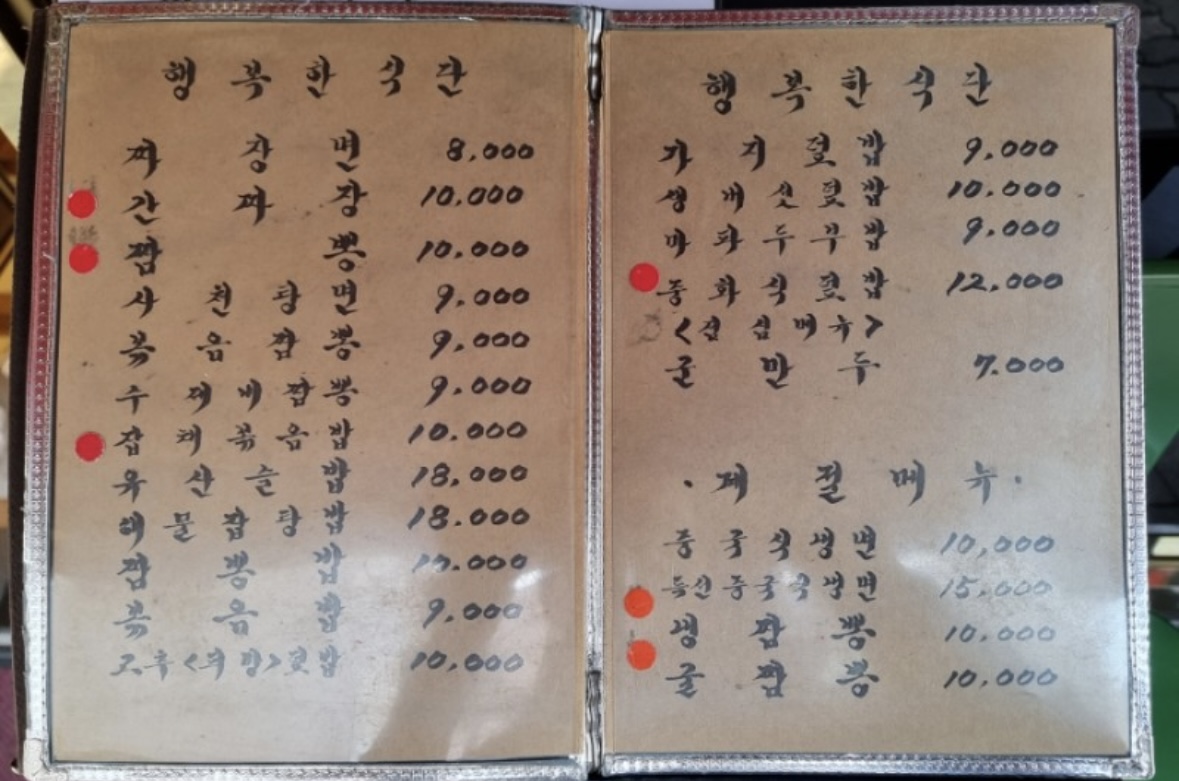 행복한식단
짜장면 8,000
간짜장 10,000
짬뽕 10,000
사천탕면 9,000
볶음짬뽕 9,000
수제비짬뽕 9,000
잡채볶음밥 10.000
유산슬밥 18,000
해물잡탕밥 18.000
짬뽕밥
볶음밥 9,000
고추<피망>덮밥 10,000
행복한식단
가지덮밥 9,000
생버섯덮밥 10.000
마파두부밥 9.000
중화식덮밥 12,000
<점심메뉴>
군만두 7.000
·계절메뉴·
중국식냉면 10,000
특선중국식냉면 15,000
생짬뽕 10.000
굴짬뽕 10,000